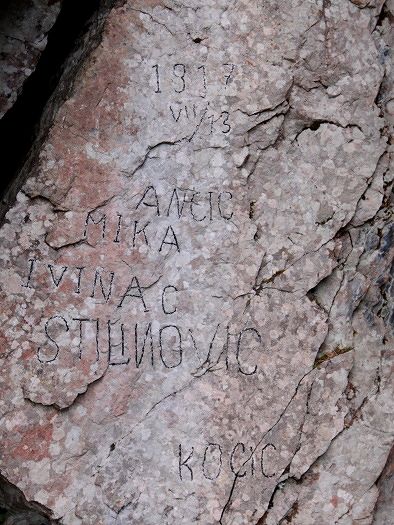 1937
VII/13
ANCIC
MIKA
IVINAC
STILINOVIC
KOCIC